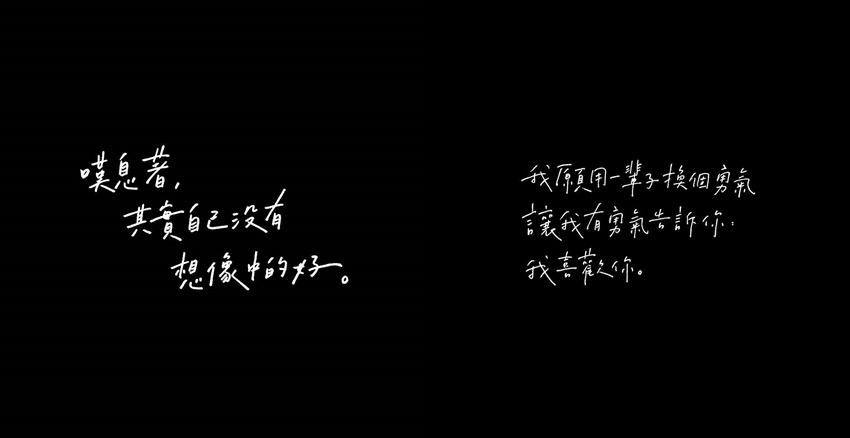 嘆息著,
其實自己沒有
想像中的好。
我願用一輩子換個勇氣
讓我有勇氣告訴你:
我喜歡你。